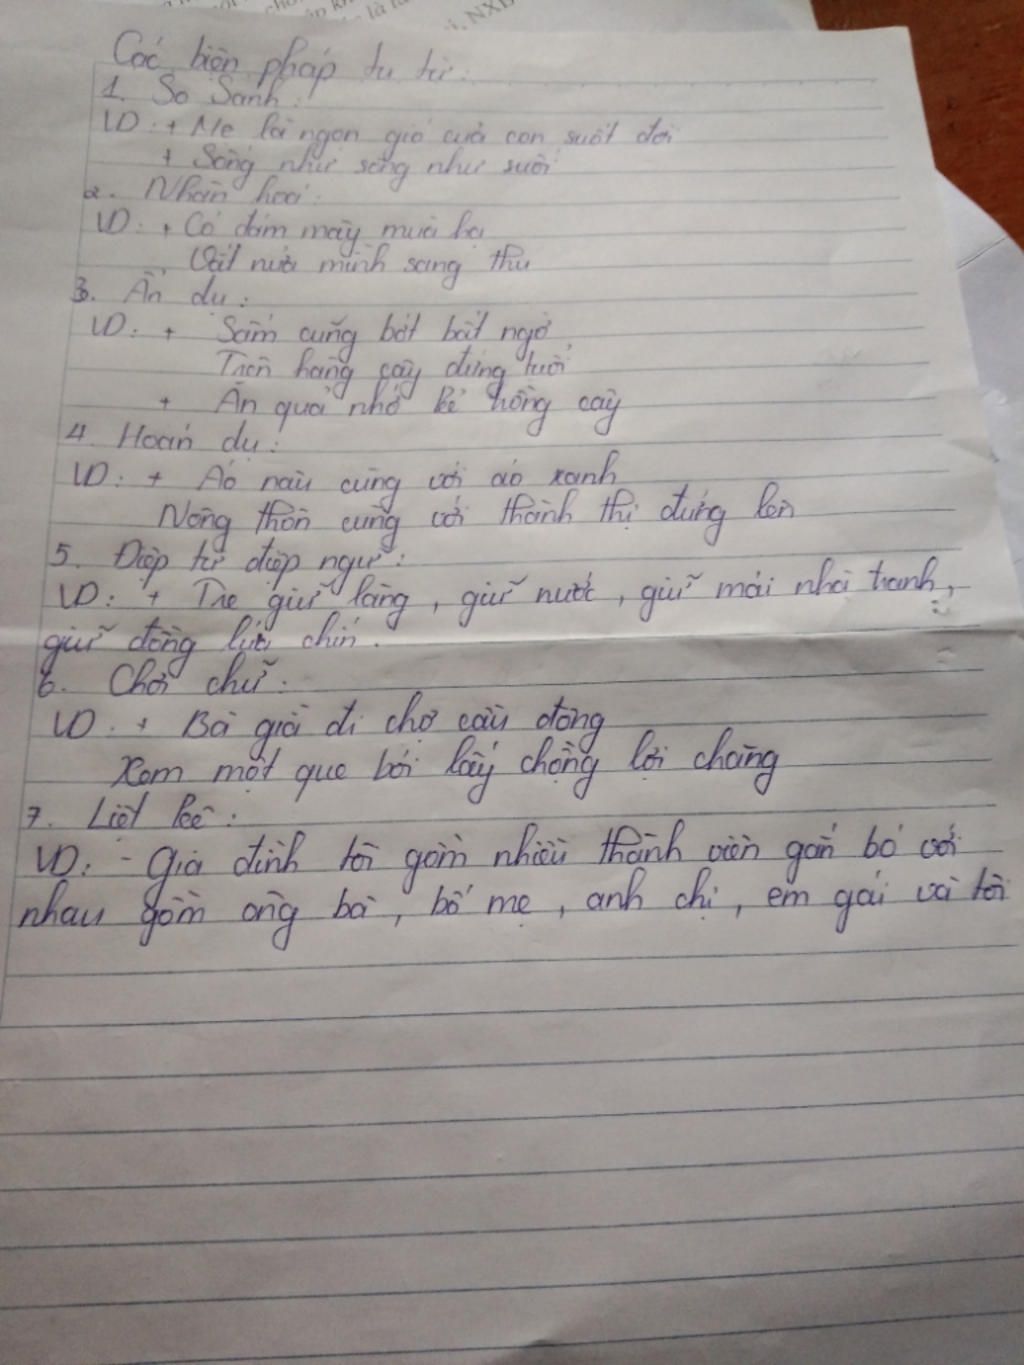 NXB
là
Các biện pháp tu từ:
1. So Sánh:
VD: + Mẹ là ngọn gió của con suốt đời
+ Sống như sông như suối
2. Nhân hoá:
VD: + Có đám mây mùa hạ
Vắt nửa mình sang thu
3. Ẩn dụ:
VD: + Sấm cũng bớt bất ngờ
Trên hàng cây đứng tuổi
+ Ăn quả nhớ kẻ trồng cây
4. Hoán dụ:
VD: + Áo nâu cùng với áo xanh
Nông thôn cùng với thành thị đứng lên
5. Điệp từ điệp ngữ:
VD: + Tre giữ làng, giữ nước, giữ mái nhà tranh,
giữ đồng lúa chín.
6. Chơi chữ:
VD: + Bà già đi chợ cầu đông
Xem một que bói lấy chồng lợi chăng
7. Liệt kê:
VD: - Gia đình tôi gồm nhiều thành viên gắn bó với
nhau gồm ông bà, bố mẹ, anh chị, em gái và tôi